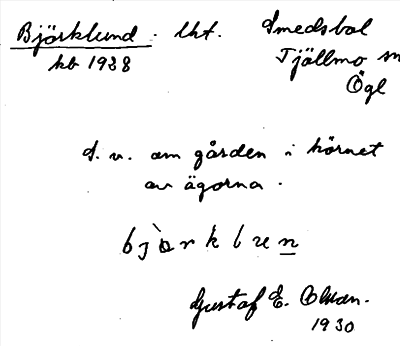 Björklund. lht. Smedsbol
kb 1938 Tjällmo sn
Ögl
S. v. om gården i hörnet
av ägorna.
bjòrklun
Gustaf E. Olsson.
1930